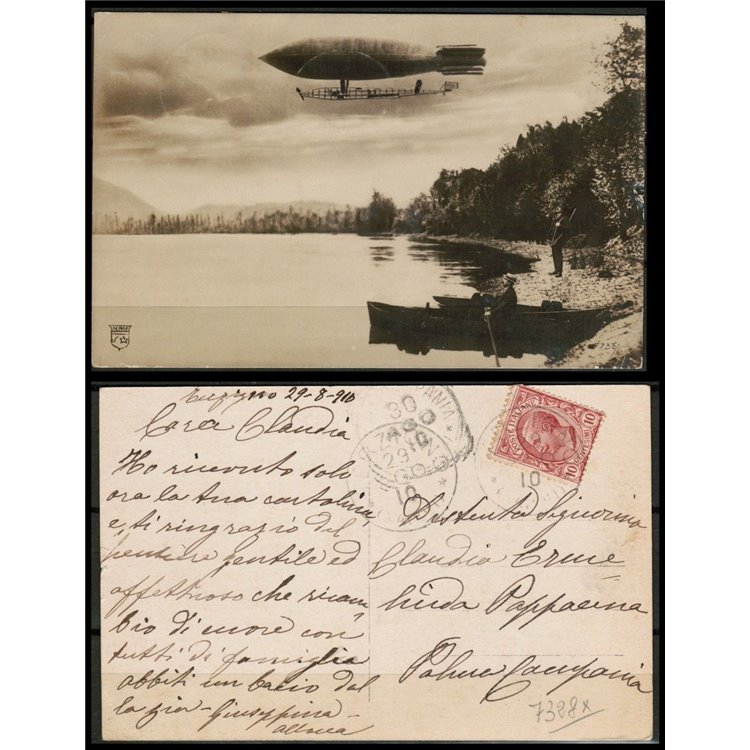 ALPINA
735/1
29-8-910
Cara Claudia
Ho ricevuto solo
ora la tua cartolina,
e, ti ringrazio del
pensiere gentile ed
affettuoso che ricam-
bio di cuore con
tutti di famiglia
abbiti un bacio dal
la zia Giuseppina
PANIA
30
AGO
10
29
10
POSTE ITALIANE
10
10
10
Distenta Signorina
Claudia Erme-
linda Pappacena
Palma Campania
7328x